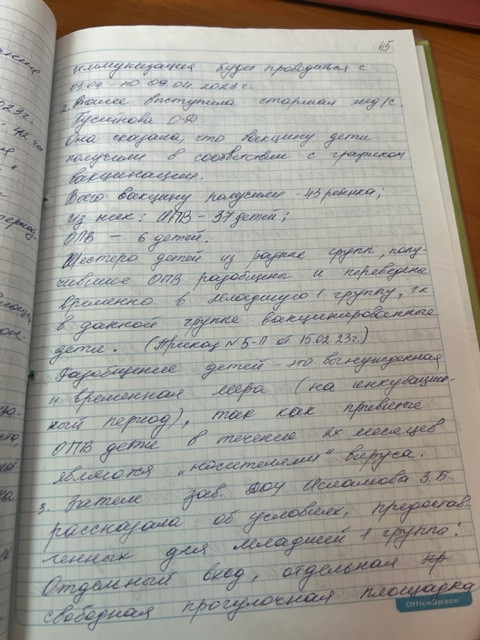 45
иммунизация будет проводиться с
03.04. по 09.04.2023г.
2. Далее выступила старшая мед/с
Гусейнова
Она сказала, что вакцину дети
получили в соответствии с графиком
вакцинации.
Всего вакцину получили - 43 ребёнка;
из них: ИПВ - 37 детей;
ОПВ - 6 детей.
Шестеро детей из разных групп, полу-
чившие ОПВ разобщены и переведены
временно в младшую 1 группу, т.к
в данной группе вакцинированные
дети. (Приказ №5-П от 15.02.23г.)
Разобщение детей - это вынужденная
и временная мера (на инкубацион-
ный период), так как привитые
ОПВ дети в течение 2х месяцев
являются "носителями" вируса.
3. Затем зав. ДОУ Исламова З.Б
рассказала об условиях, предостав
ленных для младшей 1 группы:
Отдельный вход, отдельная пр
свободная прогулочная площадка
OfficeSpace